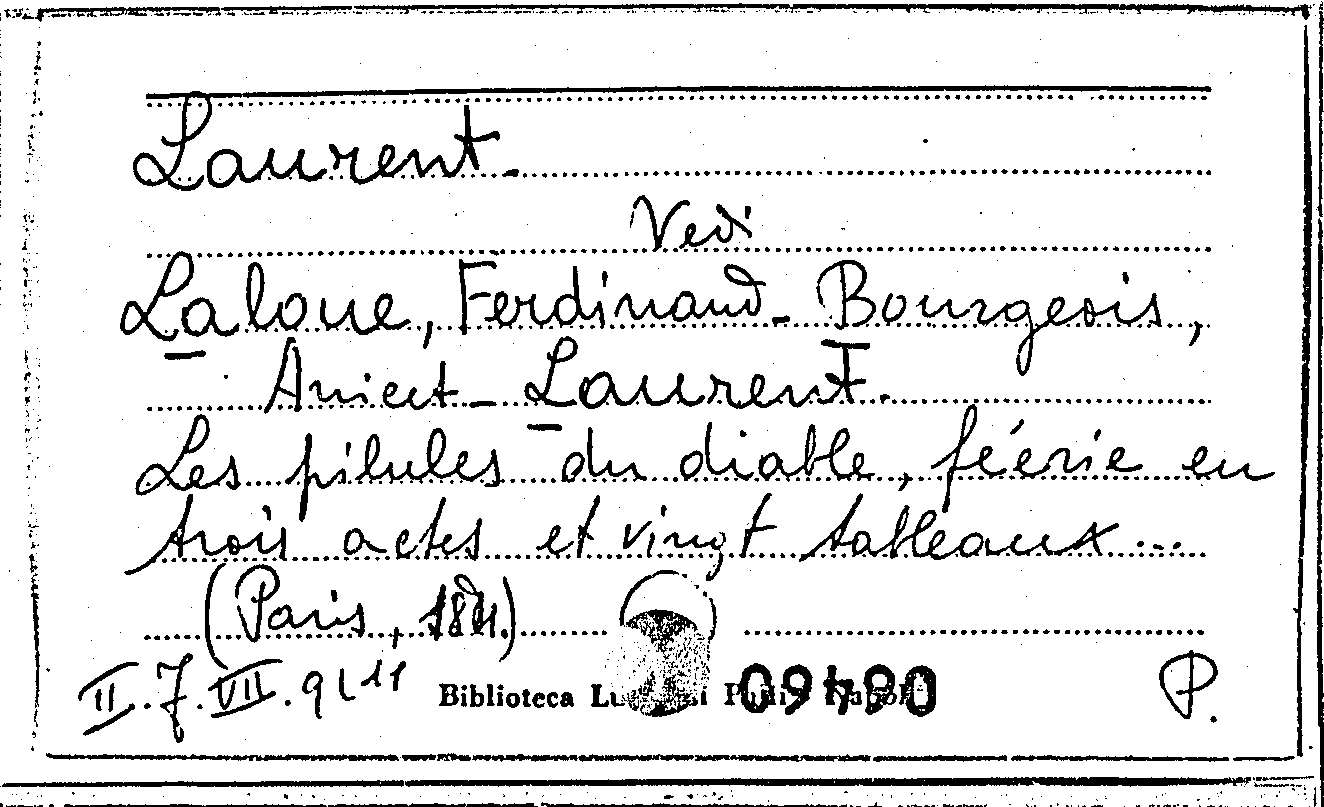 Laurent.
Vedi
Laloue, Ferdinand - Bourgeois,
Anicet - Laurent.
Les pilules du diable, féerie en
trois actes et vingt tableaux...
(Paris,
II. 7. VII. 9
Biblioteca
P.